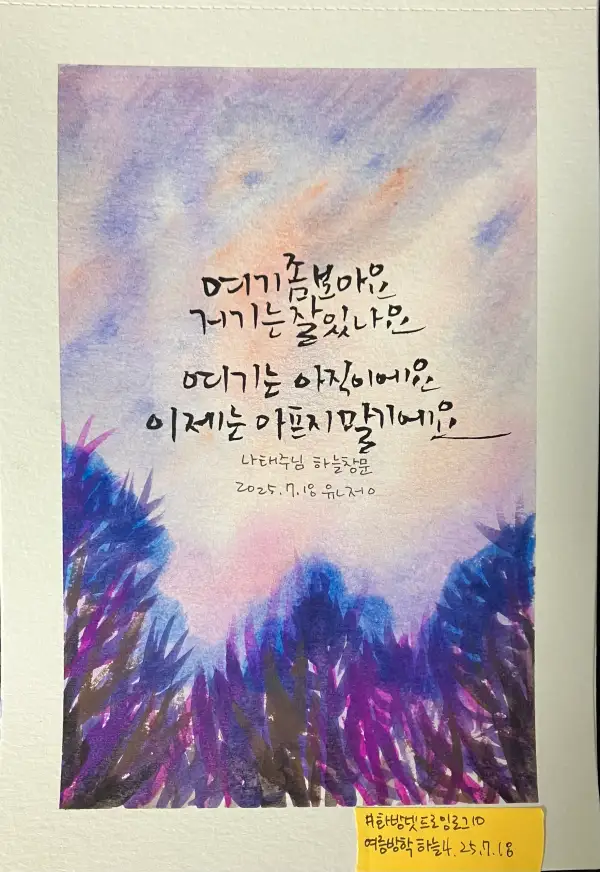 여기 좀 보아요
거기는 잘 있나요
여기는 아직이에요
이제는 아프지 말기에요
나태주님 하늘창문
2025.7.18 유저o
#화방넷드로잉로그10
여름방학 하늘4. 25.7.18